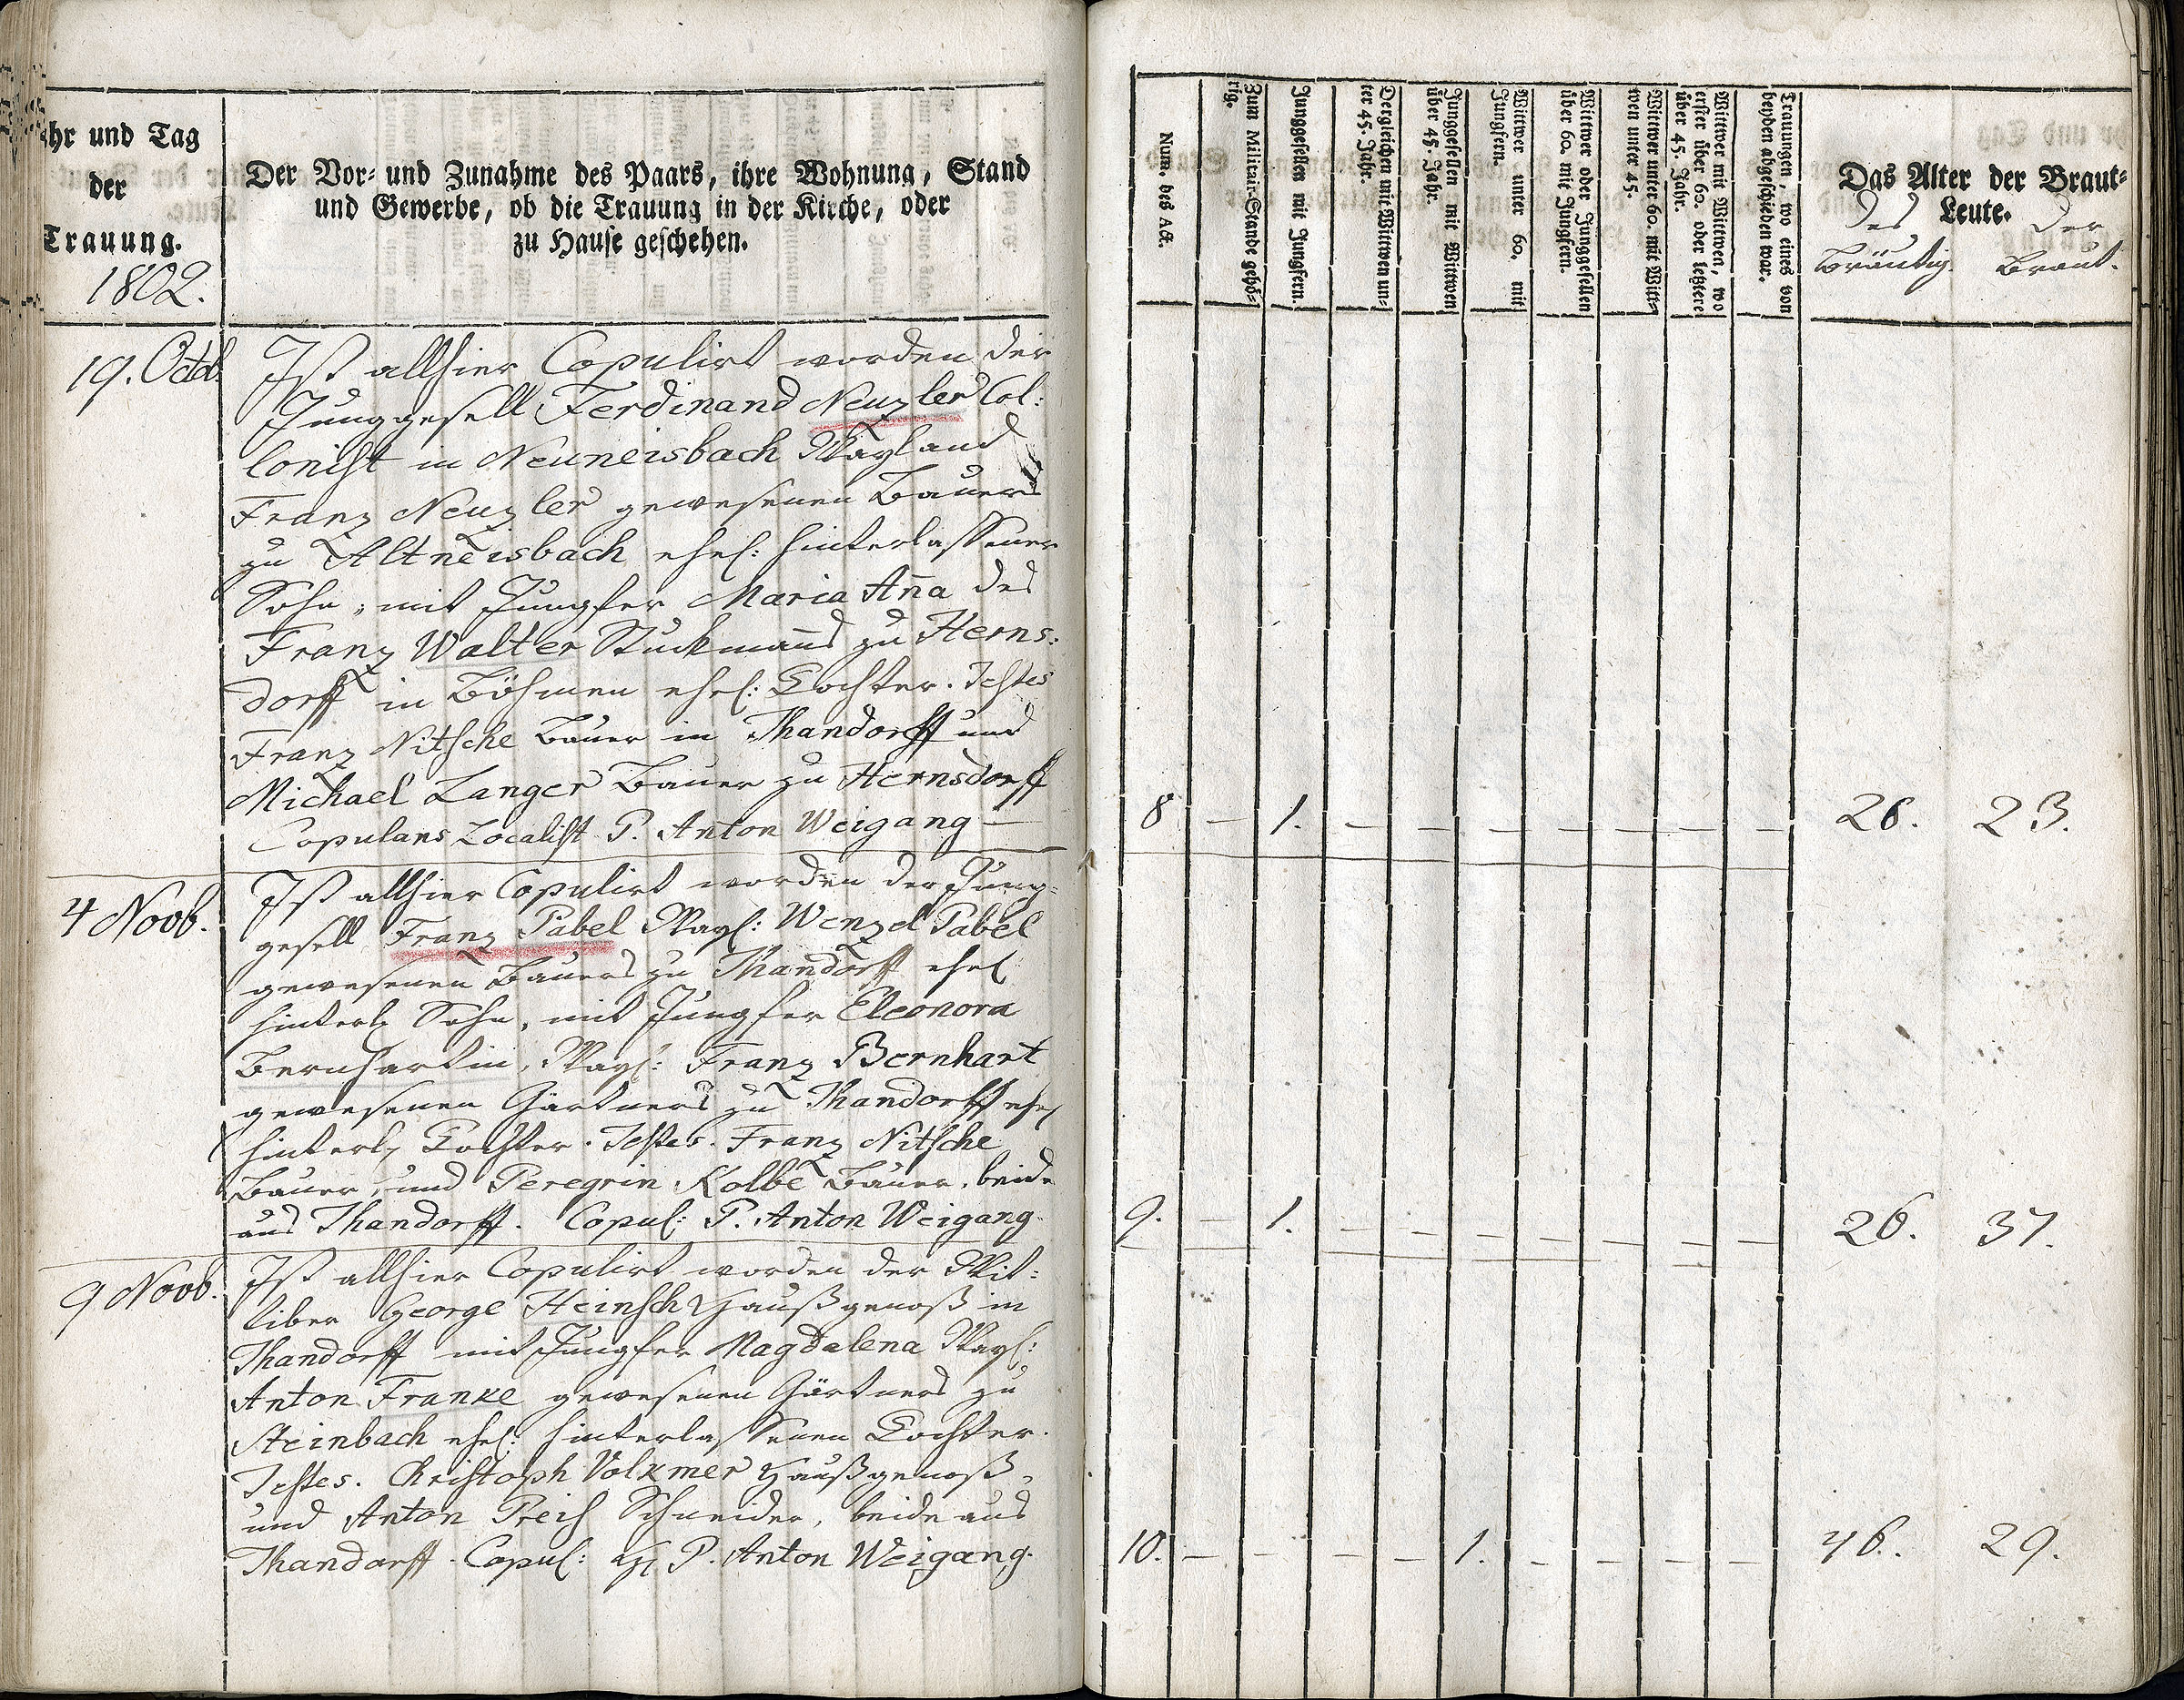 hr und Tag
der
Trauung.
1802.
Der Vor- und Zunahme des Paars, ihre Wohnung, Stand
und Gewerbe, ob die Trauung in der Kirche, oder
zu Hause geschehen.
19. Octob.
Ist allhier Copulirt worden der
Junggesell Ferdinand Neuzler Col:
lonist in Neuneisbach Weyland
Franz Neuzler gewesenen Bauers
zu Altneisbach ehel: hinterlassener
Sohn, mit Jungfer Maria Aña des
Franz Walter Stuckmañs zu Herns:
dorff in Böhmen ehel: Tochter. Testes
Franz Nitsche Bauer in Thandorff und
Michael Langer Bauer zu Hernsdorff
Copulans Localist P. Anton Weigang
4 Novb.
Ist allhier Copulirt worden der Jung:
gesell Franz Pabel Weyl: Wenzel Pabel
gewesenen Bauers zu Thandorff ehel
hinterl Sohn, mit Jungfer Eleonora
Bernhartin, Weyl: Franz Bernhart
gewesenen Gärtners zu Thandorff ehel
hinterl Tochter. Testes. Franz Nitsche
Bauer, und Peregrin Kolbe Bauer, beide
aus Thandorff. Copul: P. Anton Weigang
9 Novb.
Ist allhier Copulirt worden der Wit:
tiber George Heinsch Haußgenoß in
Thandorff mit Jungfer Magdalena Weyl:
Anton Franke gewesenen Gärtners zu
Steinbach ehel: hinterlassenen Tochter.
Testes. Christoph Volkmer Haußgenoß,
und Anton Preis Schneider, beide aus
Thandorff. Copul: P. Anton Weigang.
Num. des Act.
Zum Militair-Stande gehö-
rig.
Junggesellen mit Jungfern.
Dergleichen mit Wittwen un-
ter 45. Jahr.
Junggesellen mit Wittwen
über 45. Jahr.
Wittwer unter 60. mit
Jungfern.
Wittwer oder Junggesellen
über 60. mit Jungfern.
Wittwer unter 60. mit Witt-
wen unter 45.
Wittwer mit Wittwen, wo
erster über 60. oder letztere
über 45. Jahr.
Trauungen, wo eines von
beyden abgeschieden war.
Das Alter der Braut-
Leute.
des der
Bräutig. Braut.
8 – 1. – – – – – – – 26. 23.
9. – 1. – – – – – – – 26. 37.
10. – – – – 1. – – – – 46. 29.